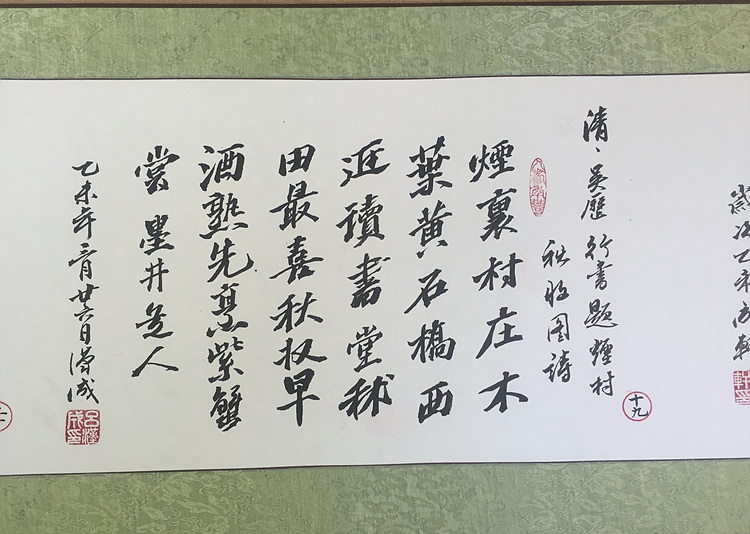 歲次乙未
清、吳歷行書題煙村
秋收圖詩
十九
煙裏村庄木
葉黃石橋西
涯讀書堂秫
田最喜秋收早
酒熟先烹紫蟹
嘗墨井道人
乙未年三月廿六日濤成